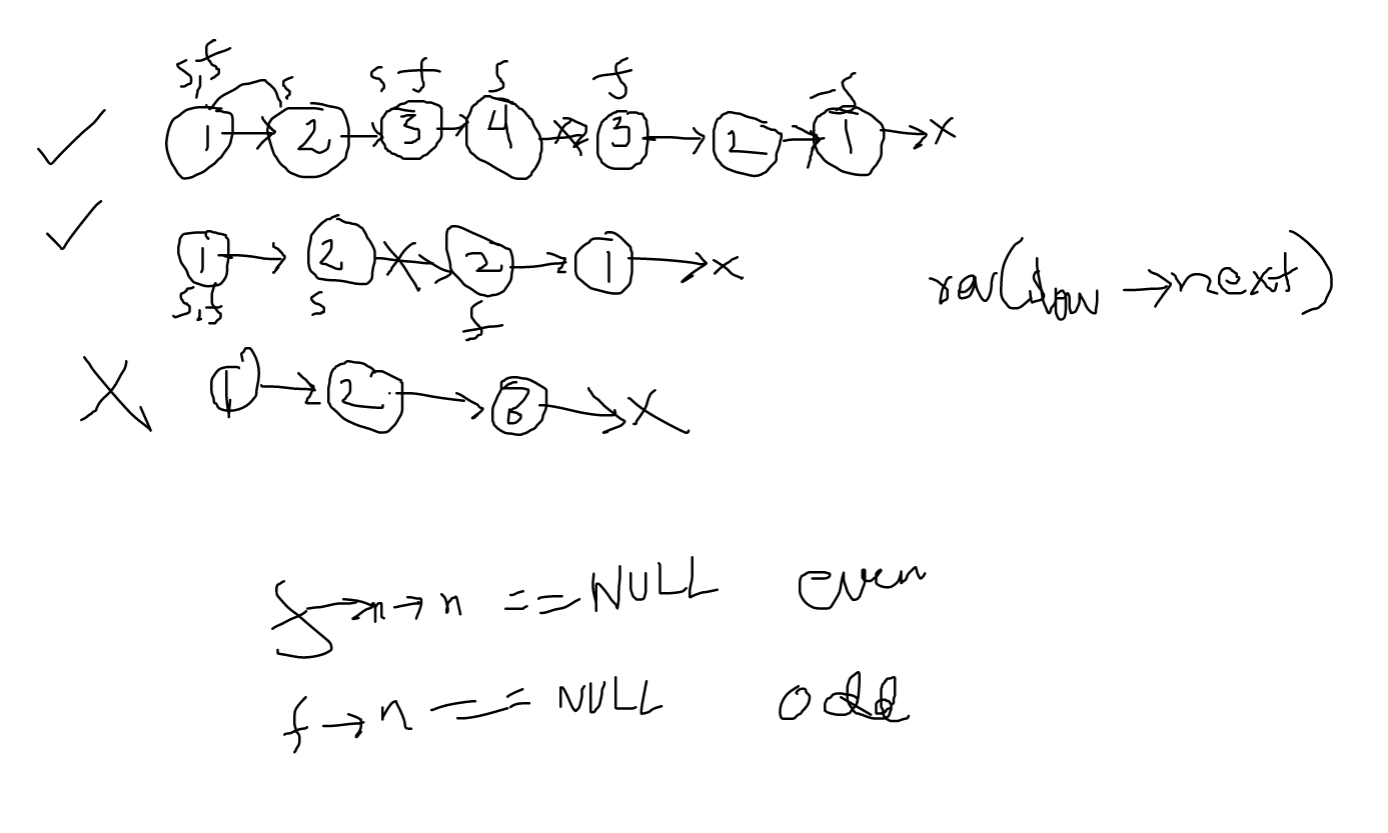 s,f s s f s f f
1 → 2 → 3 → 4 → 3 → 2 → 1 → x
1 → 2 → 2 → 1 → x
s,f s f
rev(slow → next)
1 → 2 → 3 → x
f → n → n == NULL even
f → n == NULL odd